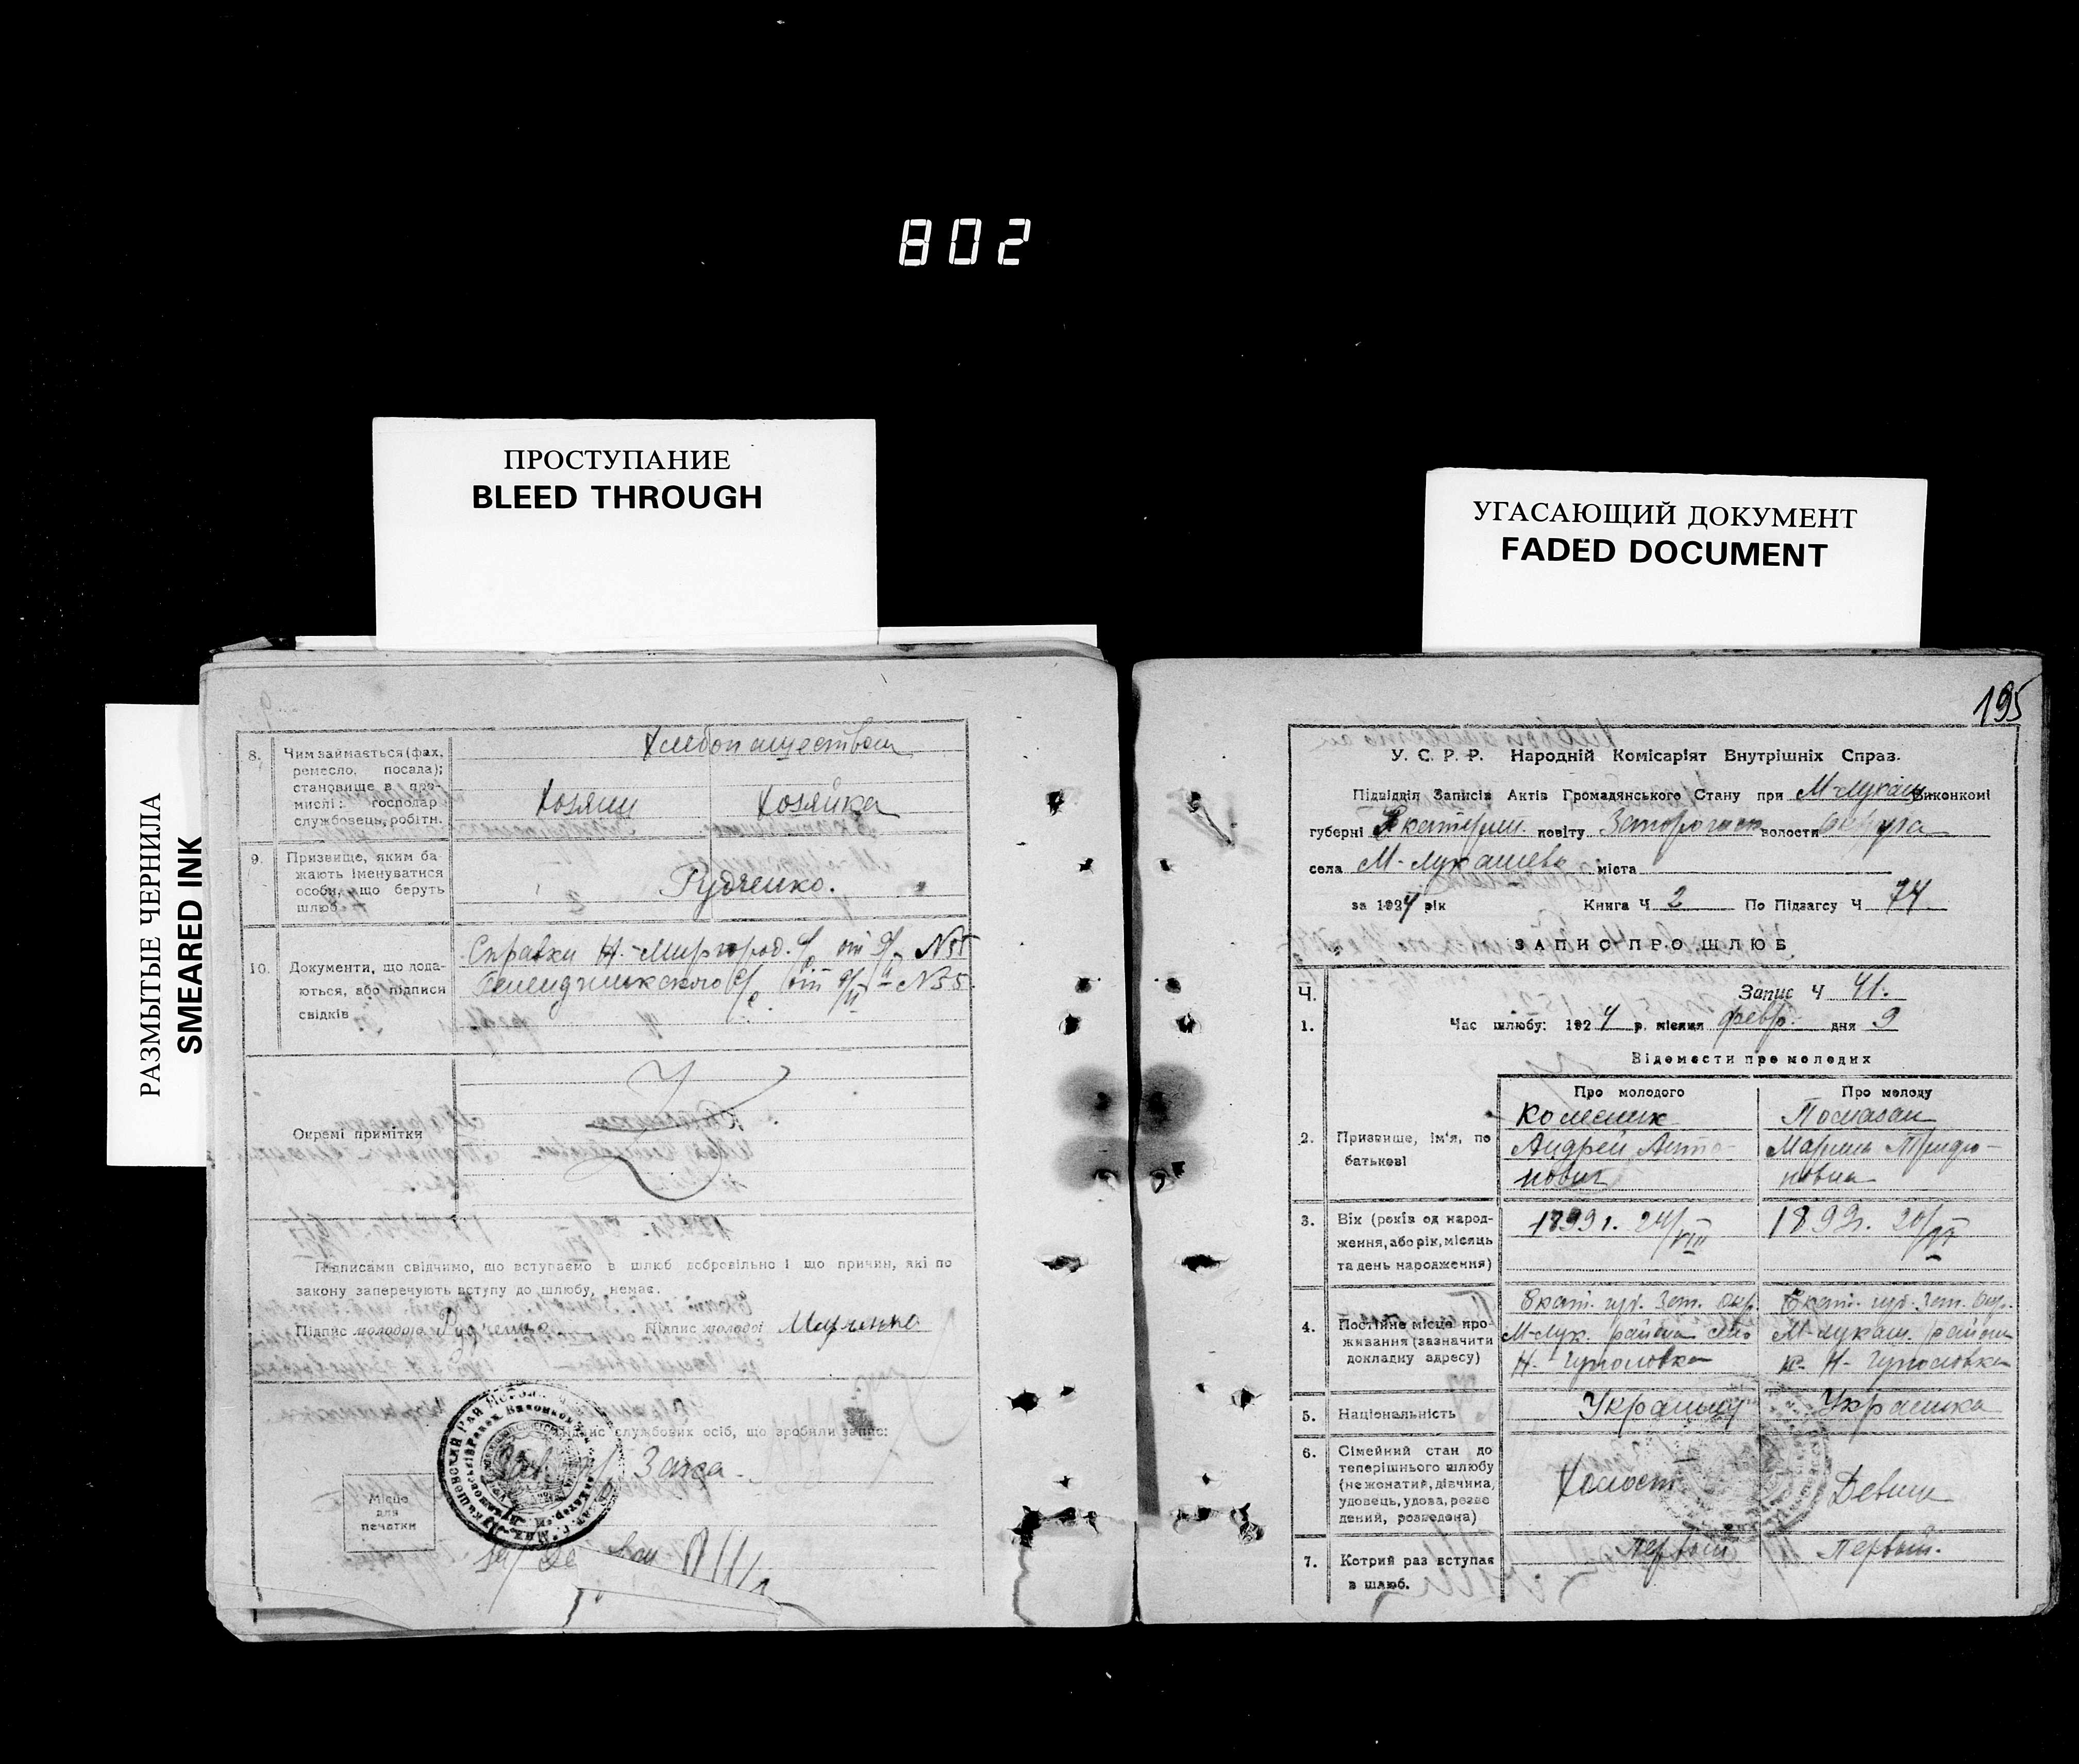 802
ПРОСТУПАНИЕ
BLEED THROUGH
УГАСАЮЩИЙ ДОКУМЕНТ
FADED DOCUMENT
РАЗМЫТЫЕ ЧЕРНИЛА
SMEARED INK
8. Чим займається (фах,
ремесло, посада);
становище в про-
мислі: господар
службовець, робітн.
Хлебопашеством
Хозяин Хозяйка
9. Призвище, яким ба-
жають іменуватися
особи, що беруть
шлюб
Рудченко.
10. Документи, що пода-
ються, або підписи
свідків
Справки Н-Миргород. с/с от 9/II N 35
с/с от 9/II - N35.
Окремі примітки
Підписами свідчимо, що вступаємо в шлюб добровільно і що причин, які по
закону заперечують вступу до шлюбу, немає.
Підпис молодого Рудченко Підпис молодої
Підпис службових осіб, що зробили запис:
Зав. Загса
Місце
для
печатки
195
У. С. Р. Р. Народній Комісаріят Внутрішніх Справ.
Підвідділ Записів Актів Громадянського Стану при М-Лукаш. Виконкомі
губерні Екатерин. повіту Запорожск волости округа
села М-Лукашево міста
за 1924 рік Книга Ч 2 По Підзагсу Ч 74
ЗАПИС ПРО ШЛЮБ
Ч. Запис Ч 41.
1. Час шлюбу: 1924 р. місяця февр. дня 9
Відомости про молодих
Про молодого Про молоду
2. Призвище, ім'я, по
батькові
Колесник
Андрей Анто-
нович
Помазан
Марина Трифо-
новна
3. Вік (років од народ-
ження, або рік, місяць
та день народження)
1899 г. 24/VIII 1893 г. 20/
4. Постійне місце про-
живання (зазначити
докладну адресу)
Екат. губ. Зап. окр.
М-Лук. района село
Н-Гуполовка
Екат. губ. Зап. окр.
М-Лукаш. района
Н-Гуполовка
5. Національність Украинец Украинка
6. Сімейний стан до
теперішнього шлюбу
(не жонатий, дівчина,
удовець, удова, розве
дений, розведена)
Холост Девица
7. Котрий раз вступає
в шлюб.
Первый Первый.